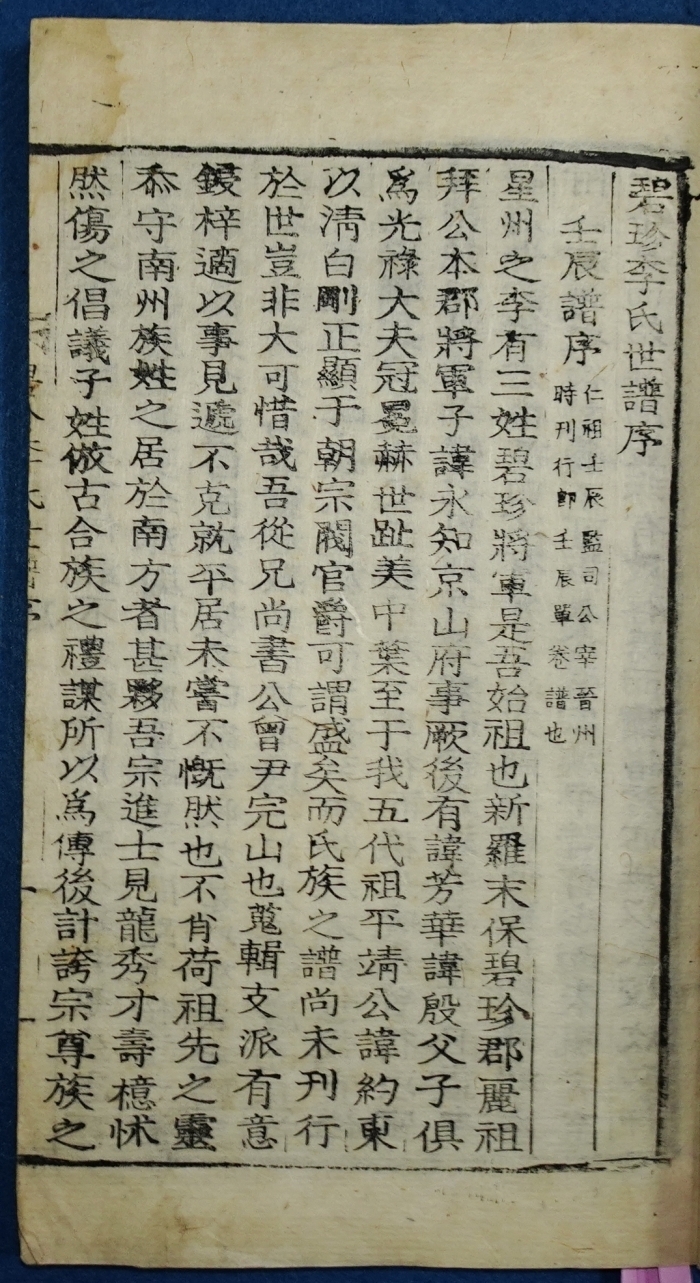 碧珍李氏世譜序
壬辰譜序
仁祖壬辰監司公宰晉州
時刊行卽壬辰單卷譜也
星州之李有三姓碧珍將軍是吾始祖也新羅末保碧珍郡麗祖
拜公本郡將軍子諱永知京山府事厥後有諱芳華諱殷父子俱
爲光祿大夫冠冕赫世趾美中葉至于我五代祖平靖公諱約東
以淸白剛正顯于朝宗閥官爵可謂盛矣而氏族之譜尚未刊行
於世豈非大可惜哉吾從兄尚書公曾尹完山也蒐輯支派有意
鋟梓適以事見遞不克就平居未嘗不慨然也不肖荷祖先之靈
忝守南州族姓之居於南方者甚夥吾宗進士見龍秀才壽檍怵
然傷之倡議子姓倣古合族之禮謀所以爲傳後計誇宗尊族之